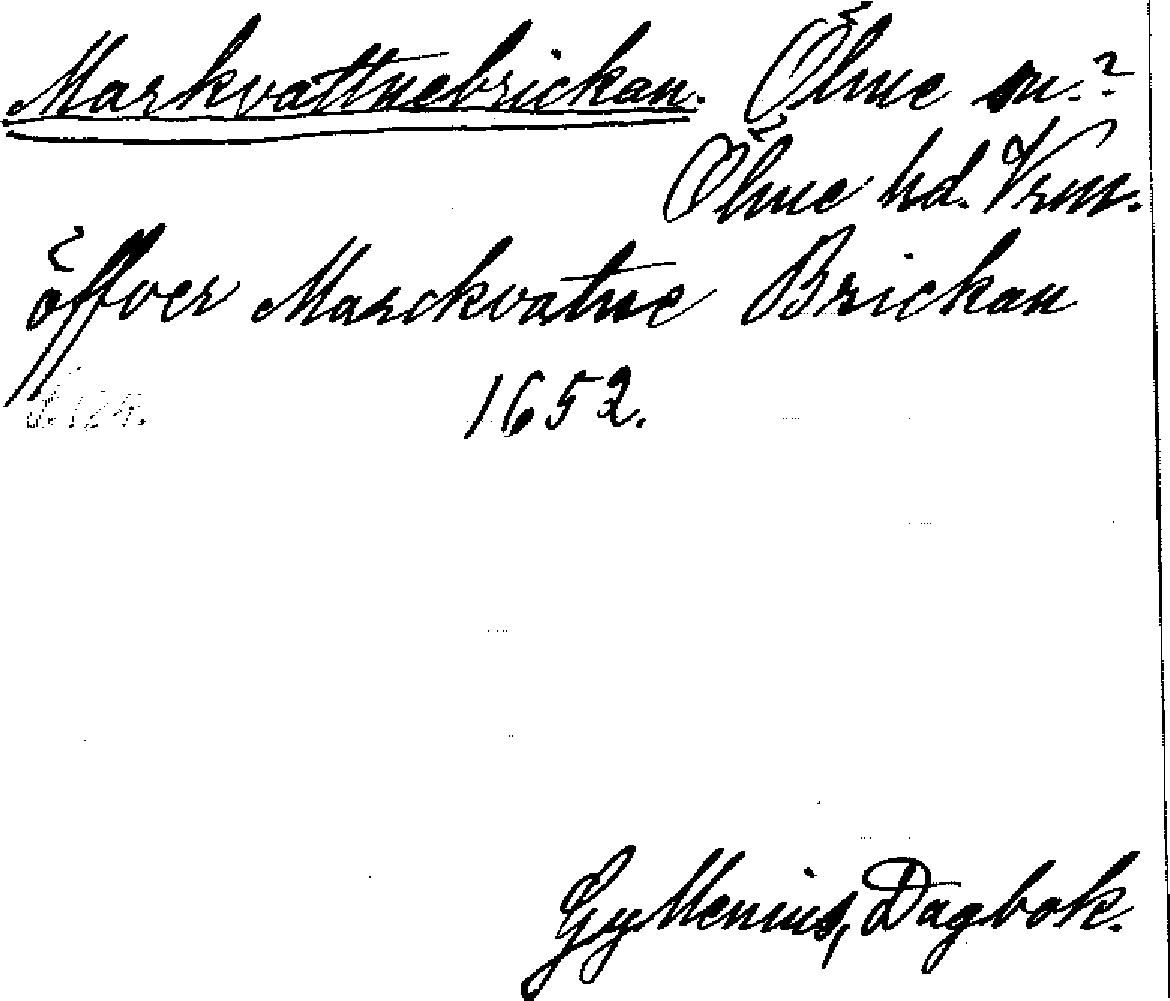 Markvattnebrickan. Ölme sn.?
Ölme hd. Vrm.
öffver Marckvatne Brickan
1652.
Gyllenius, Dagbok.